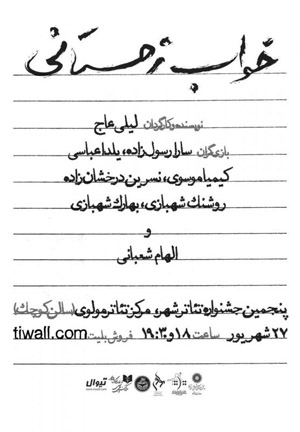 خواب زمستانی
نویسنده و کارگردان لیلی عاج
بازیگران سارا رسول زاده، یلدا عباسی
کیمیا موسوی، نسرین درخشان زاده
روشنك شهبازی، بهارك شهبازی
و
الهام شعبانی
پنجمین جشنواره تئاتر شهر، مرکز تئاتر مولوی (سالن کوچك)
۲۷ شهریور ساعت ۱۸ و ۱۹:۳۰ فروش بلیت tiwall.com
تیوال